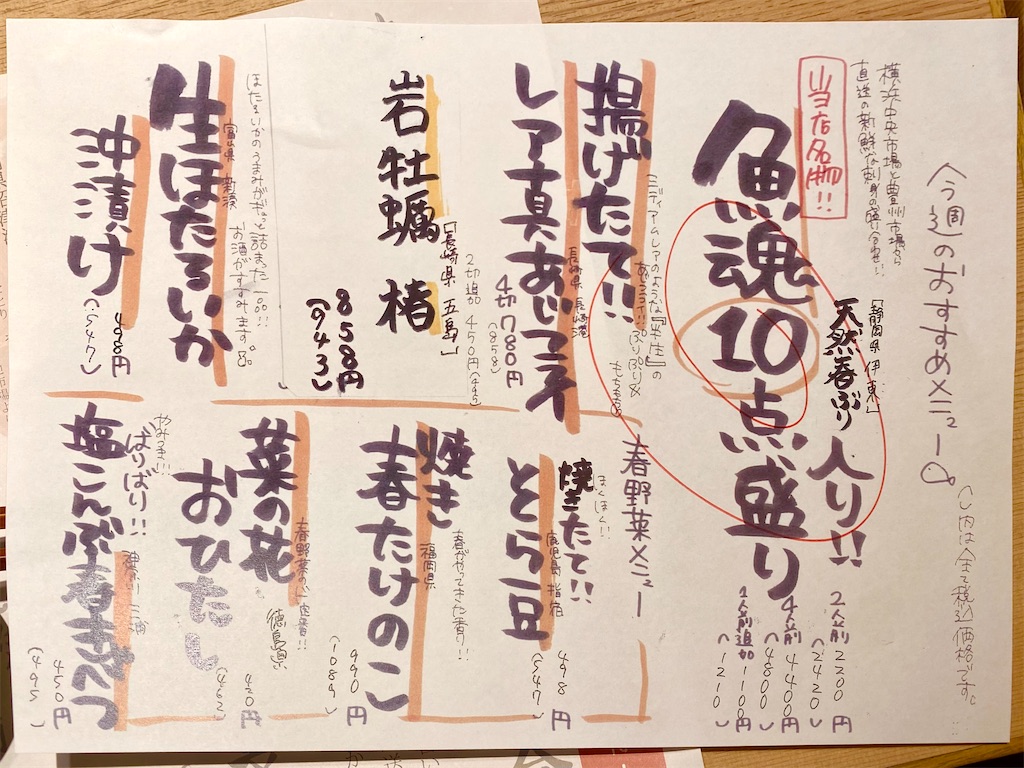 今週のおすすめメニュー
( )内は全て税込価格です。
横浜中央市場と豊洲市場から
直送の新鮮な刺身の盛り合わせ!!
当店名物!!
「静岡県 伊東」
天然春ぶり入り!!
魚魂10点盛り
2人前 2200円
(2420)
4人前 4400円
(4800)
1人前追加 1100円
(1210)
揚げたて!!
レア真あじフライ
ミディアムレアのような『半生』の
あじフライ!!ぷりぷり&
もちもち
長崎県 長崎港
4切 780円
(858)
2切追加 450円(495)
岩牡蠣 椿
「長崎県 五島」
858円
(943)
生ほたるいか
沖漬け
富山県 新湊
ほたるいかのうまみがぎゅっと詰まった一品!!
お酒がすすみます。
498円
(547)
春野菜メニュー
ほくほく!!
焼きたて!!
とら豆
鹿児島 指宿
498円
(547)
焼き
春たけのこ
春がやってきた香り!!
福岡県
990円
(1089)
菜の花
おひたし
春野菜の定番!!
徳島県
420円
(462)
やみつき!!
ばりばり!!
塩こんぶ春キャベツ
神奈川 三浦
450円
(495)